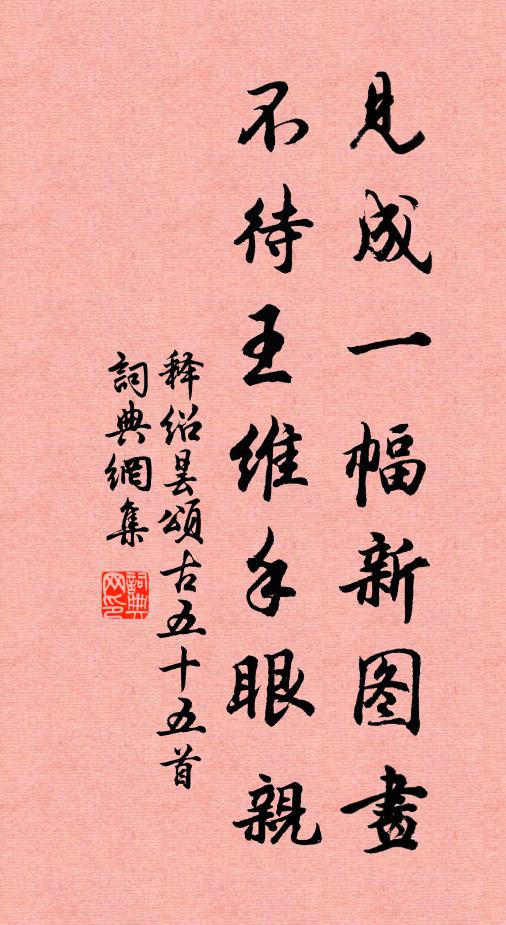 見成一幅新图畫
不待王維手眼親
释绍昙頌古五十五首
詞典網集
詞典网印